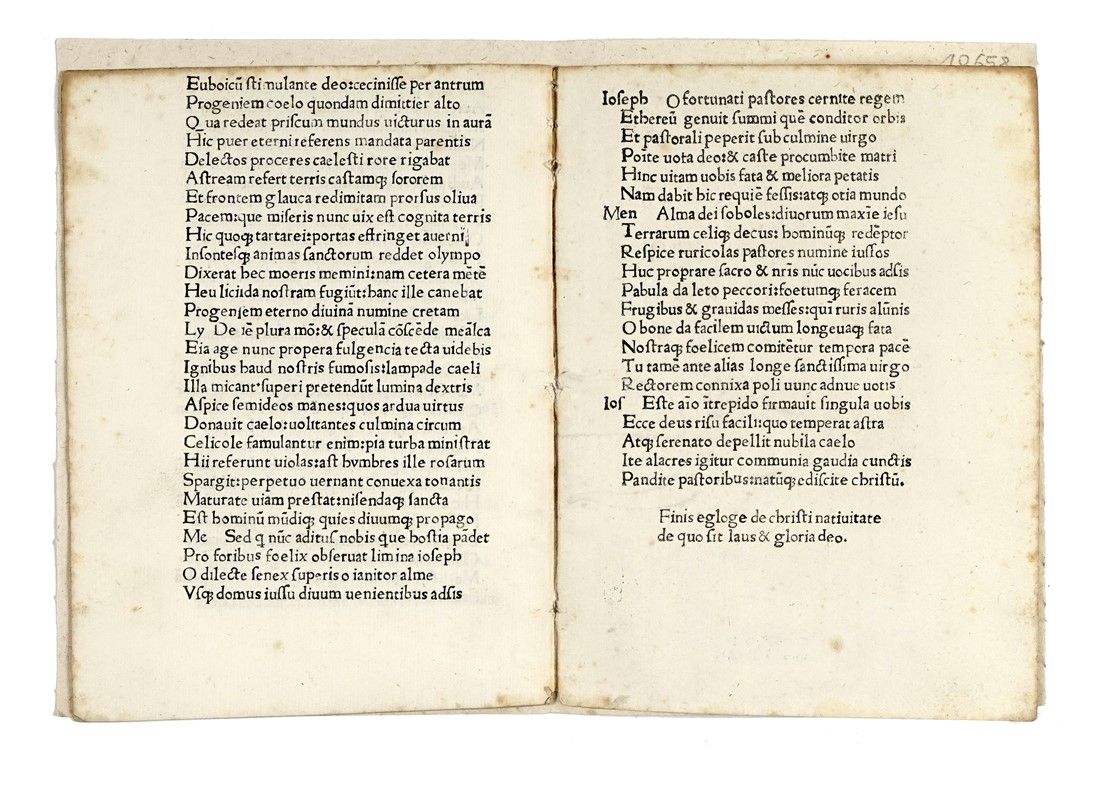 Euboicū ſtimulante deo:ceciniſſe per antrum
Progeniem coelo quondam dimittier alto
Qua redeat priſcum mundus uicturus in aurā
Hic puer eterni referens mandata parentis
Delectos proceres caeleſti rore rigabat
Aſtream refert terris caſtamqꝫ ſororem
Et frontem glauca redimitam prorſus oliua
Pacem:que miſeris nunc uix eſt cognita terris
Hic quoqꝫ tartarei:portas eſtringet auerni
Inſonteſqꝫ animas ſanctorum reddet olympo
Dixerat hec moeris memini:nam cetera mētē
Heu licida noſtram fugiūt:hanc ille canebat
Progeniem eterno diuinā numine cretam
Ly De iē plura mō:& ſpeculā cōſcēde meālca
Eia age nunc propera fulgencia tecta uidebis
Ignibus haud noſtris fumoſis:lampade caeli
Illa micant:ſuperi pretendūt lumina dextris
Aſpice ſemideos manes:quos ardua uirtus
Donauit caelo:uolitantes culmina circum
Celicole famulantur enim:pia turba miniſtrat
Hii referunt uiolas:aſt hvmbres ille roſarum
Spargit:perpetuo uernant conuexa tonantis
Maturate uiam preſtat:niſendaqꝫ ſancta
Eſt hominū mūdiqꝫ quies diuumqꝫ propago
Me Sed q nūc adituſ nobis que hoſtia pādet
Pro foribus foelix obſeruat limina ioſeph
O dilecte ſenex ſuperis o ianitor alme
Vſqꝫ domus iuſſu diuum uenientibus adſis
10658
Ioſeph O fortunati paſtores cernite regem
Ethereū genuit ſummi quē conditor orbis
Et paſtorali peperit ſub culmine uirgo
Poīte uota deo:& caſte procumbite matri
Hinc uitam uobis fata & meliora petatis
Nam dabit hic requiē feſſis:atqꝫ otia mundo
Men Alma dei ſoboles:diuorum maxīe ieſu
Terrarum celiqꝫ decus: hominūqꝫ redēptor
Reſpice ruricolas paſtores numine iuſſos
Huc proprare ſacro & nrīs nūc uocibus adſis
Pabula da leto peccori:foetumqꝫ feracem
Frugibus & grauidas meſſes:quī ruris alūnis
O bone da facilem uictum longeuaqꝫ fata
Noſtraqꝫ foelicem comitētur tempora pacē
Tu tamē ante alias longe ſanctiſſima uirgo
Rectorem connixa poli uunc adnue uotis
Ioſ Eſte aīo ītrepido firmauit ſingula uobis
Ecce deus riſu facili:quo temperat aſtra
Atqꝫ ſerenato depellit nubila caelo
Ite alacres igitur communia gaudia cunctis
Pandite paſtoribus:natūqꝫ ediſcite chriſtū.
Finis egloge de chriſti natiuitate
de quo ſit laus & gloria deo.